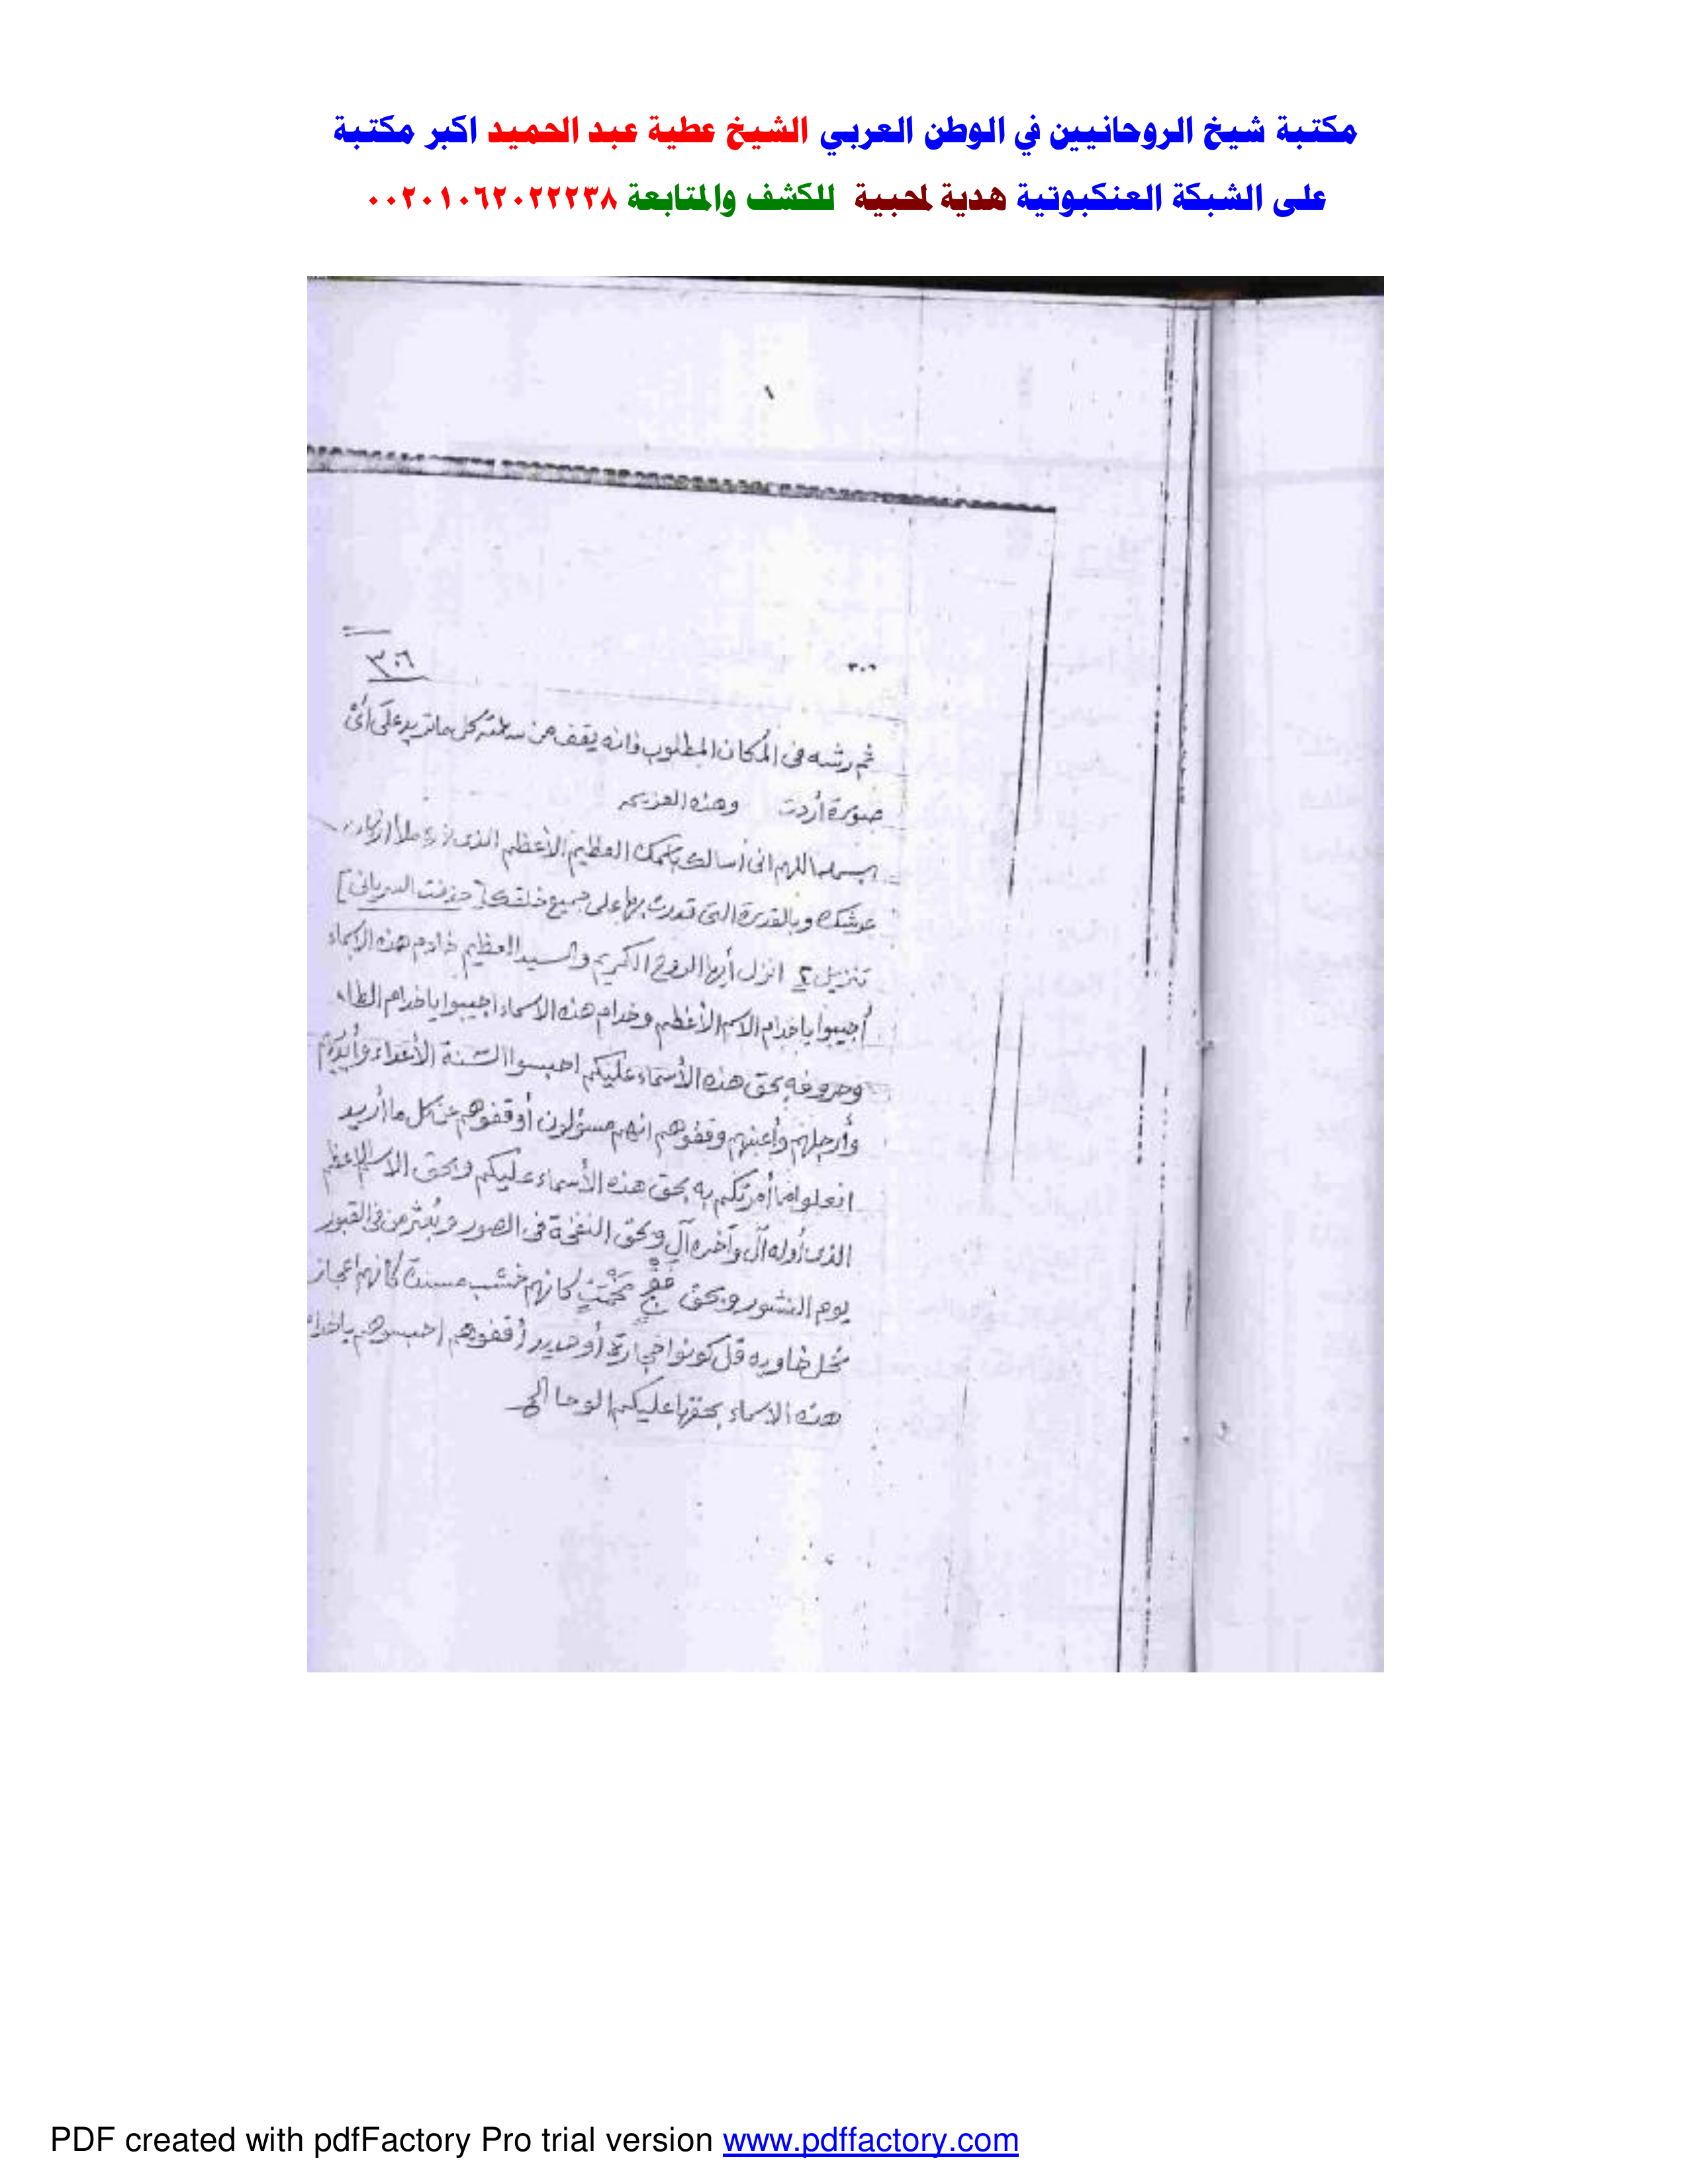 مكتبة شيخ الروحانيين في الوطن العربي الشيخ عطية عبد الحميد اكبر مكتبة
على الشبكة العنكبوتية هدية لمحبية للكشف والمتابعة ٠٠٢٠١٠٦٢٠٢٢٢٣٨
١
٣٠٦
٣٠٦
ثم رشه فى المكان المطلوب فانه يقف من كل ما تريد على أى
صورة أردت وهذه العزيمه
اللهم انى أسالك باسمك العظيم الأعظم الذى ملأ أركان
عرشك وبالقدرة التى قدرت بها على جميع خلقك
تنزيل انزل أيها الروح الكريم والسيد العظيم خادم هذه الاسماء
أجيبوا ياخدام الاسم الأعظم وخدام هذه الاسماء اجيبوا ياخدام
وحروفه بحق هذه الأسماء عليكم احبسوا السنة الأعداء وأيديهم
وأرجلهم وأعينهم وقفوهم انهم مسؤلون أوقفوهم عن كل ما أريد
افعلوا ما أمرتكم به بحق هذه الأسماء عليكم وبحق الاسم الاعظم
الذى أوله آل وآخره آل وبحق النفخة فى الصور وبعثر من فى القبور
يوم النشور وبحق كانهم خشب مسندة كانهم اعجاز
نخل خاويه قل كونوا حجارة أو حديد أقفوهم احبسوهم ياخدام
هذه الاسماء بحقها عليكم الوحا الخ
PDF created with pdfFactory Pro trial version www.pdffactory.com